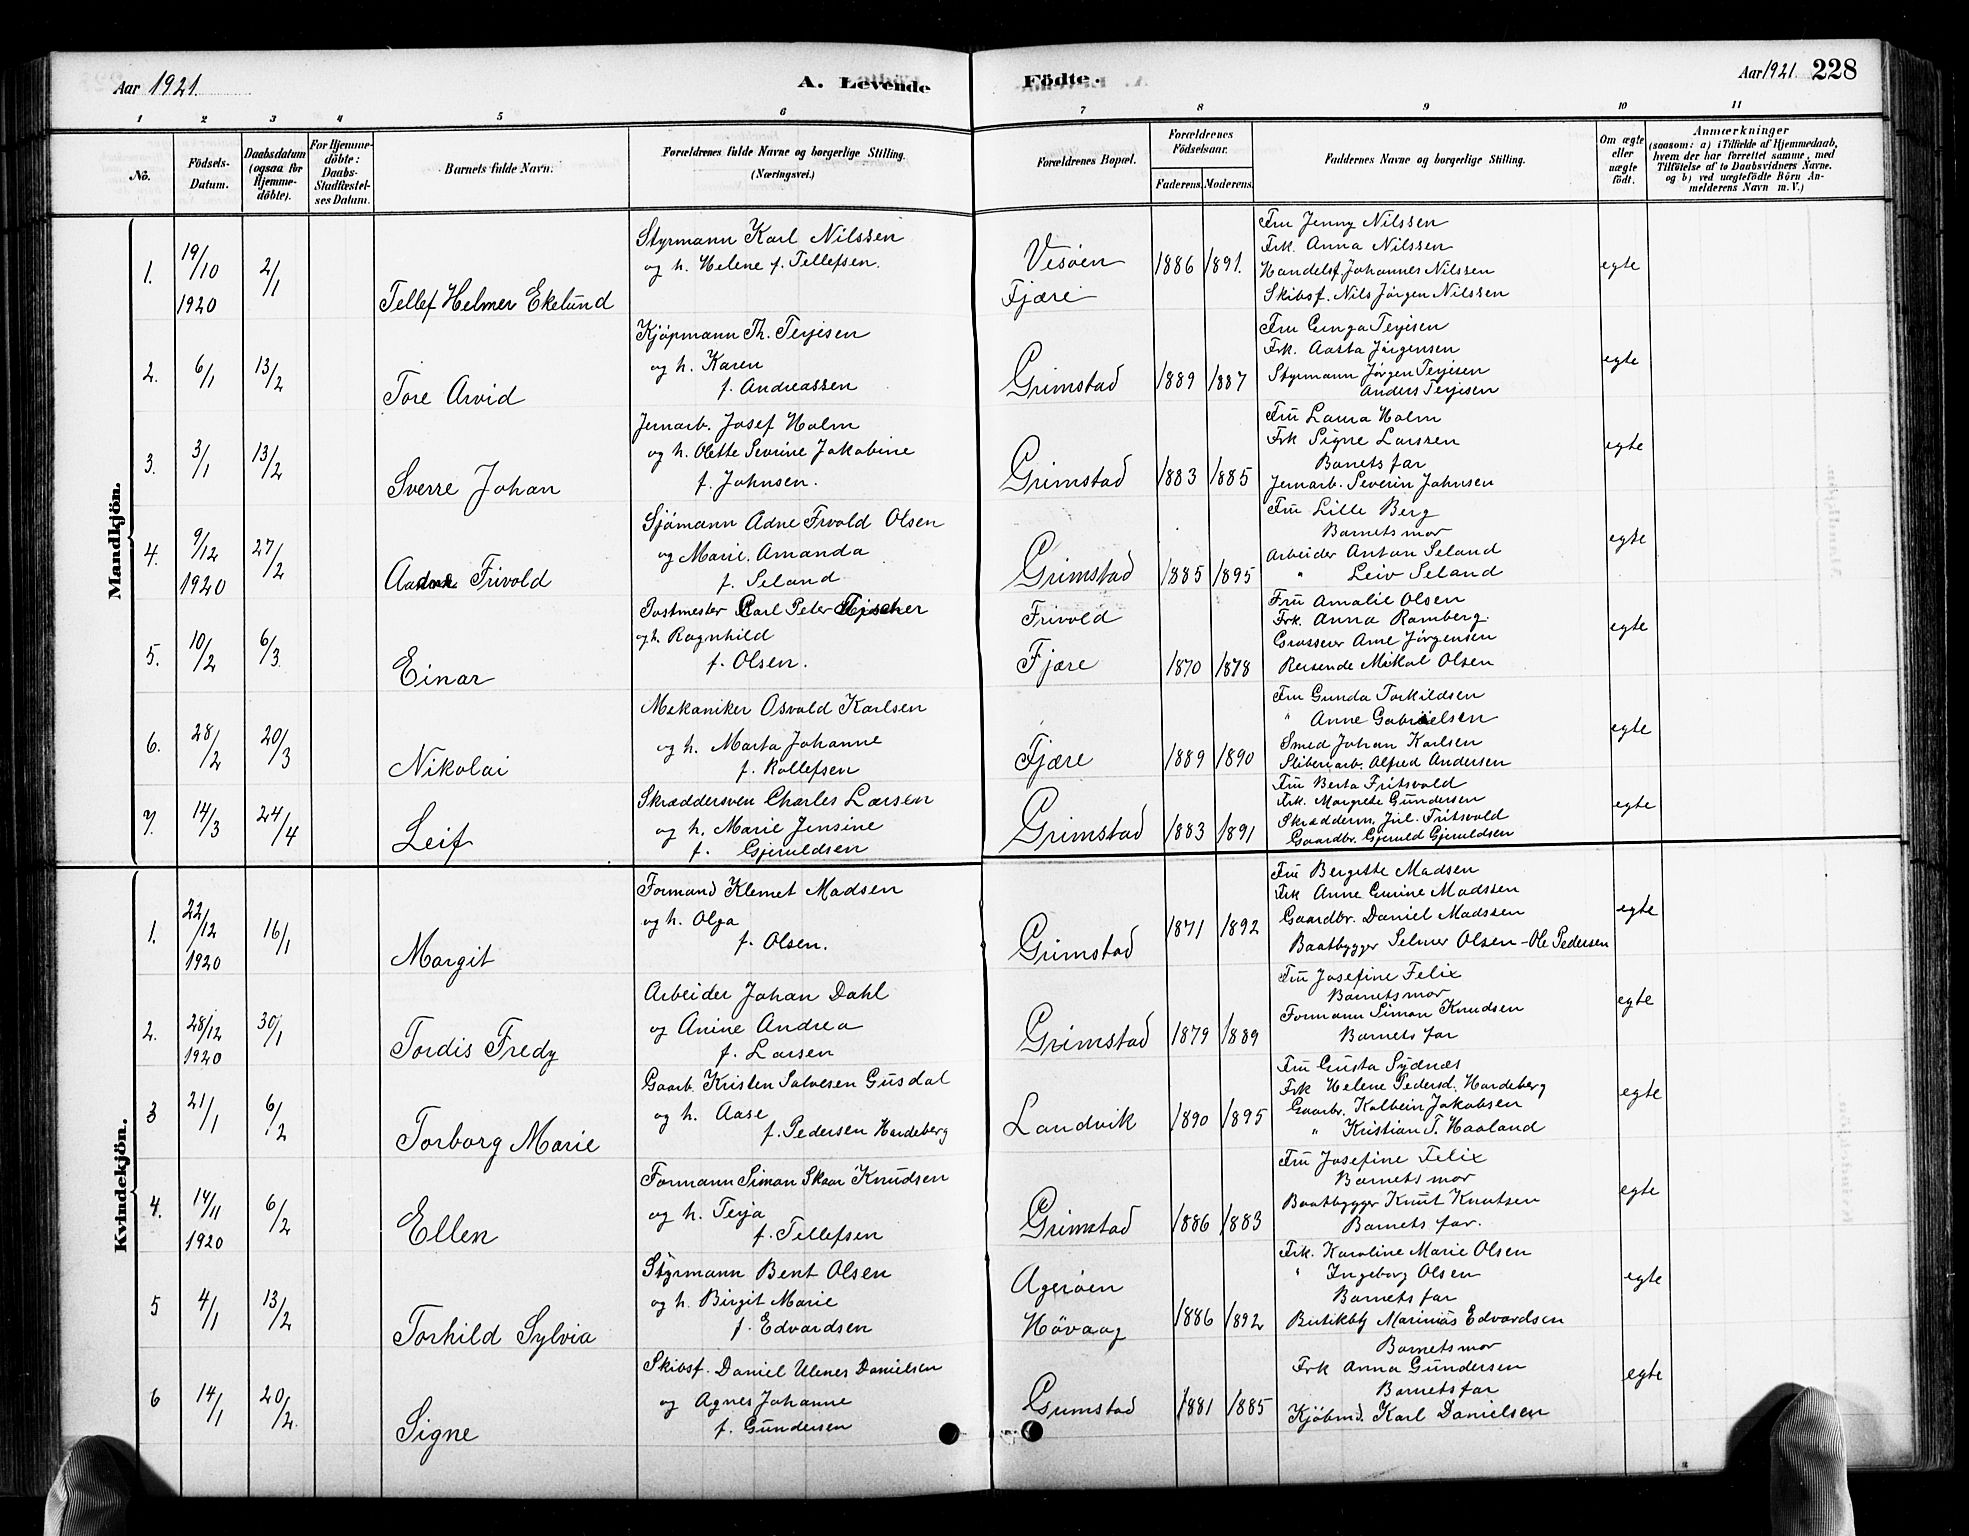 Aar 1921. A. Levende Födte. Aar 1921. 228
1 2 3 4 5 6 7 8 9 10 11
No. Födsels-Datum. Daabsdatum (ogsaa for Hjemme-döbte). For Hjemme-döbte: Daabs-Stadfæstel-ses Datum. Barnets fulde Navn. Forældrenes fulde Navne og borgerlige Stilling. (Næringsvei.) Forældrenes Bopæl. Forældrenes Födselsaar. Faderens. Moderens. Faddernes Navne og borgerlige Stilling. Om ægte eller uægte födt. Anmærkninger
(saasom: a) i Tilfælde af Hjemmedaab, hvem der har forrettet samme, med Tilföielse af to Daabsvidners Navne. og b) ved uægtefödte Börn An-melderens Navn m. V.)
Mandkjön.
1. 19/10 1920 2/1 Tellef Helmer Ekelund
Styrmann Karl Nilssen
og h. Helene f. Tellefsen.
Vesøen
Fjære
1886 1891.
Fru Jenny Nilssen
Frk. Anna Nilssen
Handelsf. Johannes Nilssen
Skibsf. Nils Jørgen Nilssen
egte
2. 6/1 13/2 Tore Arvid
Kjøpmann Th. Terjesen
og h. Karen
f. Andreassen
Grimstad 1889 1887
Fru Gunga Terjesen
Frk. Aasta Jørgensen
Styrmann Jørgen Terjesen
Anders Terjesen
egte
3. 3/1 13/2 Sverre Johan
Jernarb. Josef Holm
og h. Olette Severine Jakobine
f. Johnsen.
Grimstad 1883 1885
Fru Laura Holm
Frk Signe Larssen
Barnets far
Jernarb. Severin Johnsen
egte
4. 9/12 1920 27/2 Frivold
Sjømann Adne Frvold Olsen
og Marie Amanda
f. Seland
Grimstad 1885 1895
Fru Lille Berg
Barnets mor
Arbeider Anton Seland
" Leiv Seland
egte
5. 10/2 6/3 Einar
Postmester Carl Peter Fischer
og h. Ragnhild
f. Olsen.
Frivold
Fjære 1870 1878
Fru Amalie Olsen
Frk. Anna Ramberg.
Grosserer Arne Jørgensen
Reisende Mikal Olsen
egte
6. 28/2 20/3 Nikolai
Mekaniker Osvald Karlsen
og h. Marta Johanne
f. Rollefsen
Fjære 1889 1890
Fru Gunda Torkildsen
" Anne Gabrielsen
Smed Johan Karlsen
Sliberiarb. Alfred Andersen
egte
7. 14/3 24/4 Leif
Skræddersven Charles Larsen
og h. Marie Jensine
f. Gjeruldsen
Grimstad 1883 1891
Fru Berta Fritsvold
Frk. Margrete Gundersen
Skrædderm. Jul. Fritsvold
Gaardbr. Gjeruld Gjeruldsen
egte
Kvindekjön.
1. 22/12 1920 16/1 Margit
Formand Klemet Madsen
og h. Olga
f. Olsen.
Grimstad 1871 1892
Fru Bergitte Madsen
Frk Anne Gurine Madssen
Gaardbr. Daniel Madssen
Baatbygger Selmer Olsen - Ole Pedersen
egte
2. 28/12 1920 30/1 Tordis Fredy
Arbeider Johan Dahl
og Anine Andrea
f. Larsen
Grimstad 1879 1889
Fru Josefine Felix
Barnets mor
Formann Simon Knudsen
Barnets far
egte
3 21/1 6/2 Torborg Marie
Gaarb. Kristen Salvesen Gusdal
og h. Aase
f. Pedersen Hardeberg
Landvik 1890 1895
Fru Gusta Sydnæs
Frk Helene Pedersd. Hardeberg
Gaarbr. Kolbein Jakobsen
" Kristian T. Haaland
egte
4. 14/11 1920 6/2 Ellen
Formann Simon Skaar Knudsen
og h. Terja
f. Tellefsen
Grimstad 1886 1883
Fru Josefine Felix
Barnets mor
Baatbygger Knut Knutsen
Barnets far.
egte
5 4/1 13/2 Torhild Sylvia
Styrmann Bent Olsen
og h. Birgit Marie
f. Edvardsen
Agerøen
Høvaag
1886 1892
Frk. Karoline Marie Olsen
" Ingeborg Olsen
Barnets far
Butikbtj Marinius Edvardsen
egte
6 14/1 20/2 Signe
Skibsf. Daniel Ulenes Danielsen
og Agnes Johanne
f. Gundersen
Grimstad 1881 1885
Barnets mor
Frk Anna Gundersen
Barnets far
Kjøbmd. Karl Danielsen
egte